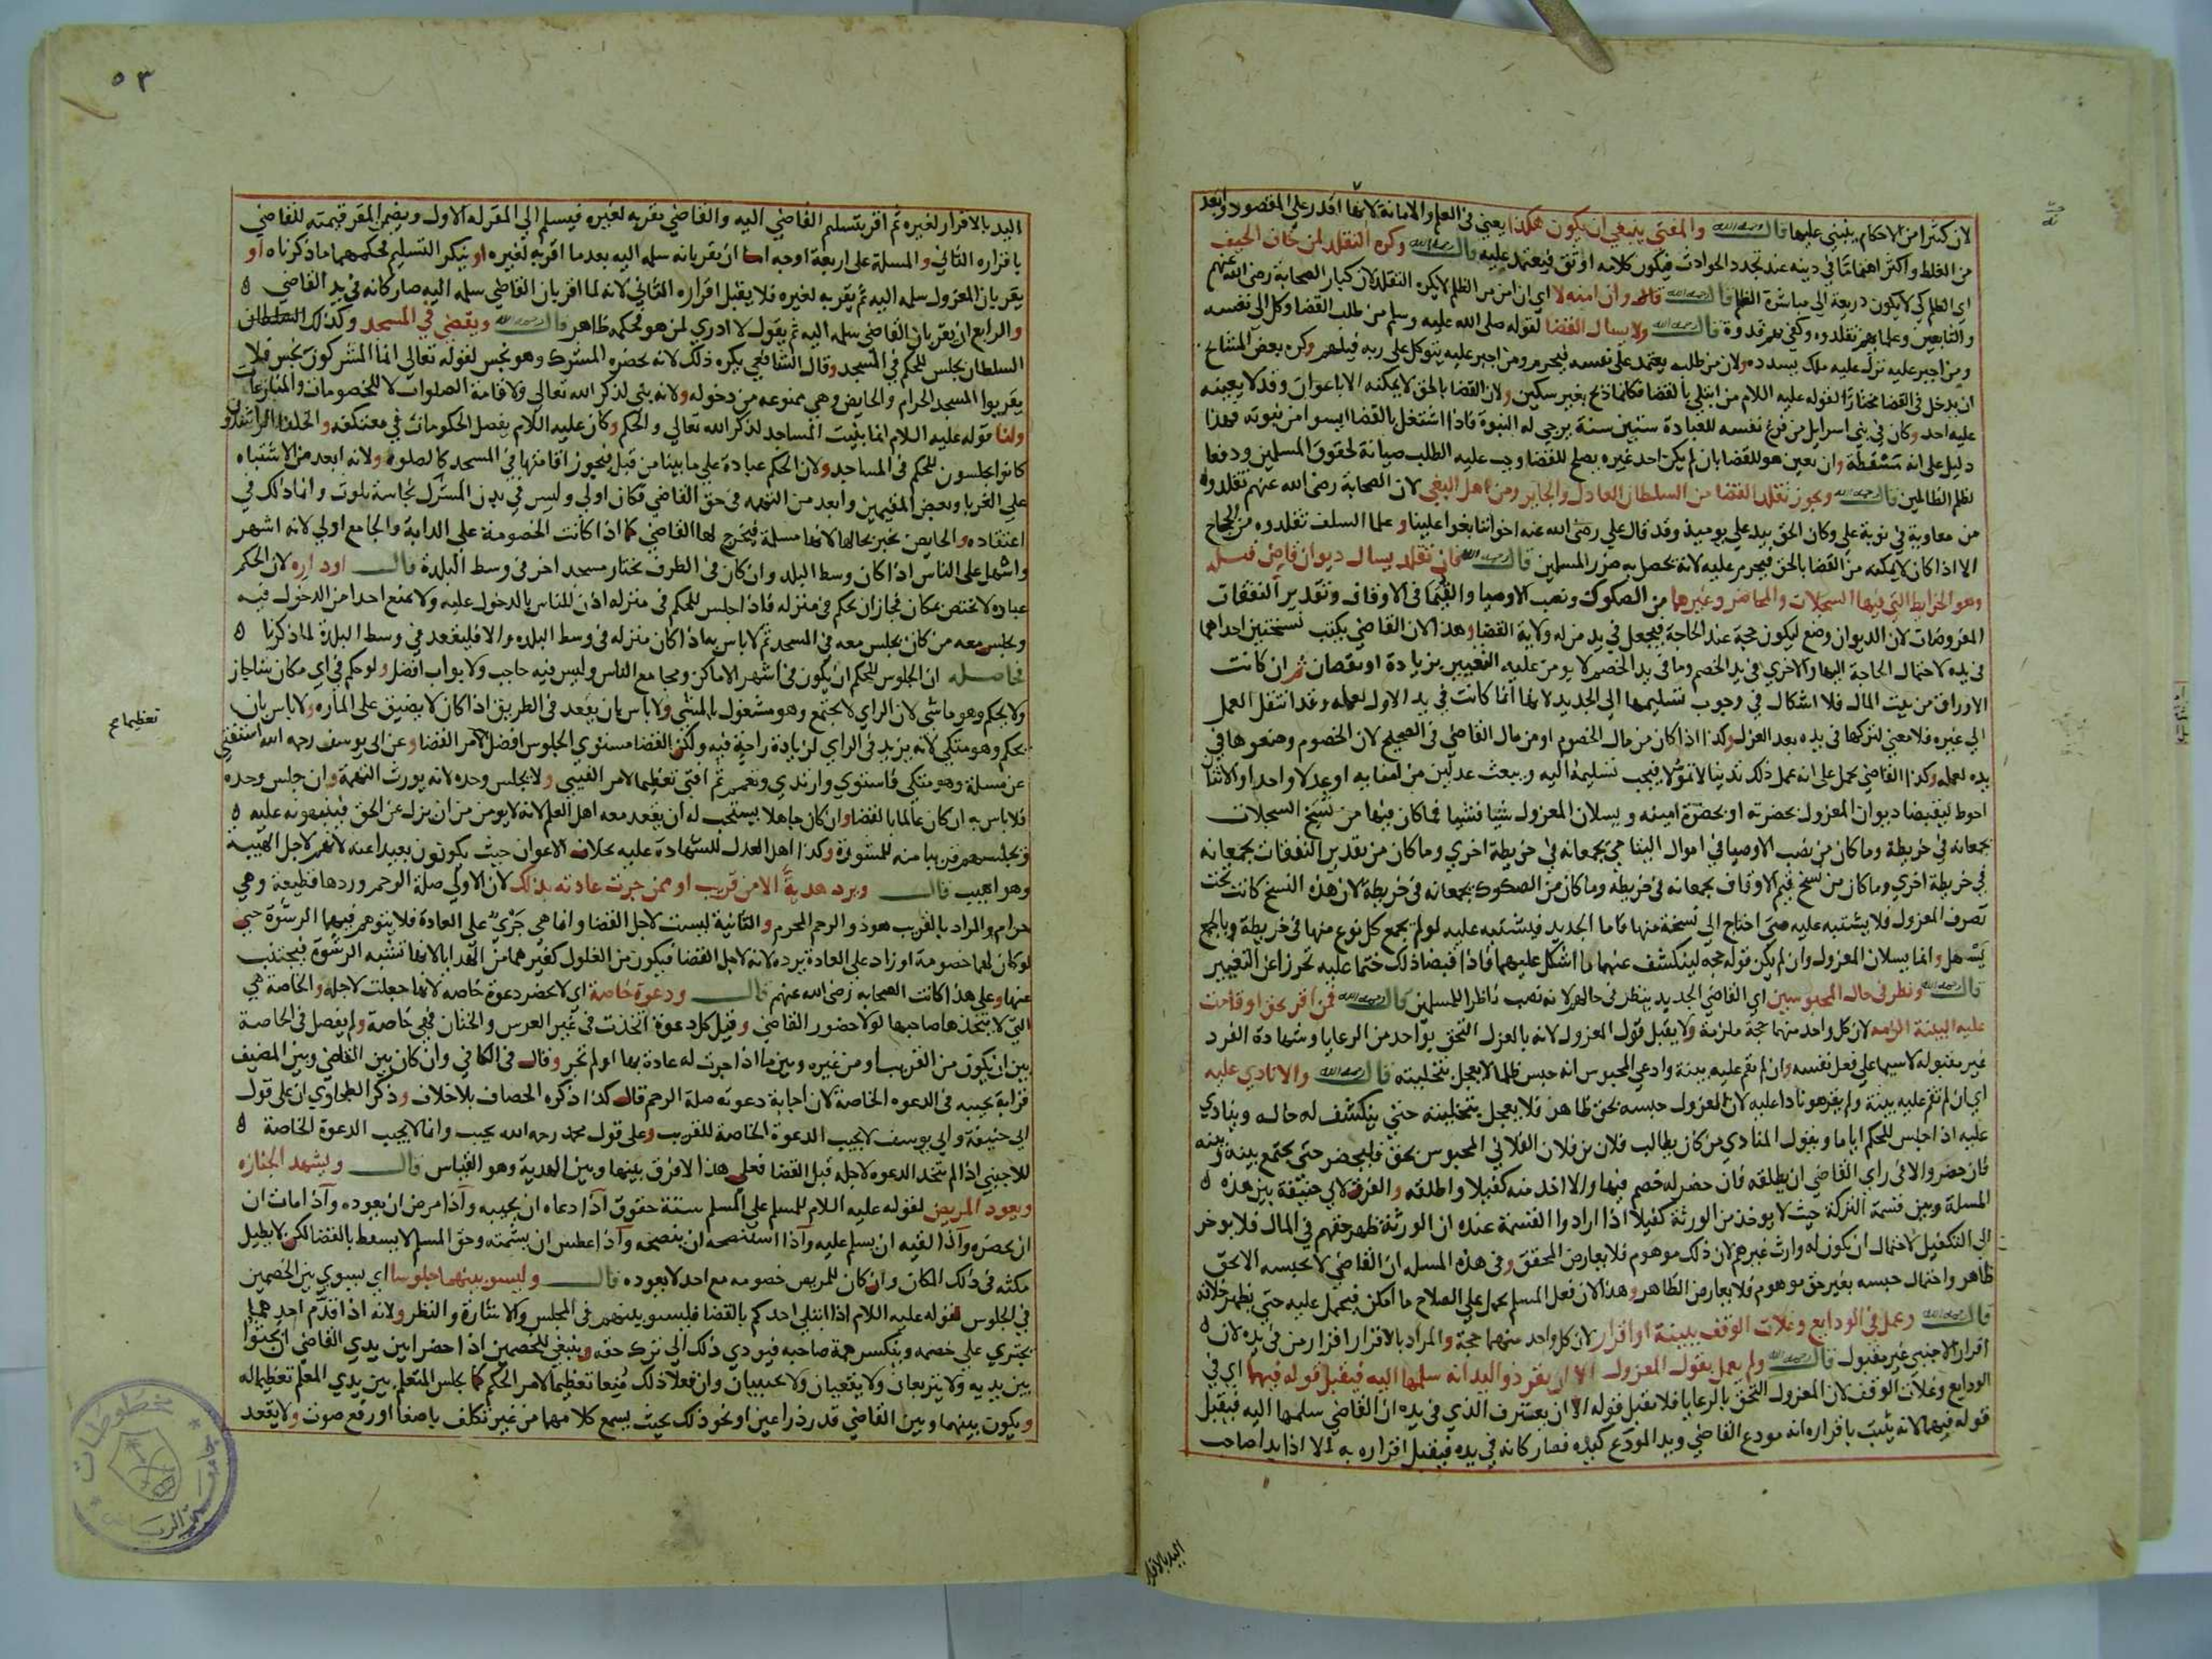 لان كثيرا من الاحكام يبتني عليها قال رحمه الله والمفتي ينبغي ان يكون هكذا يعني في العلم والامانة لانها اقدر على المقصود وابعد
من الغلط واكثر اهتماما في دينه عند تجدد الحوادث فيكون كلامه اوثق فيعتمد عليه قال رحمه الله وكره التقلد لمن خاف الحيف
اي الظلم كي لا يكون ذريعة الى مباشرة الظلم قال رحمه الله وان امنه لا اي ان امن من الظلم لا يكره التقلد لان كبار الصحابة رضى الله عنهم
والتابعين وعلماءهم تقلدوه وكفى بهم قدوة قال رحمه الله ولا يسال القضا لقوله صلى الله عليه وسلم من طلب القضا وكل الى نفسه
ومن اجبر عليه نزل عليه ملك يسدده ولان من طلبه يعتمد على نفسه فيحرم ومن اجبر عليه يتوكل على ربه فيلهم وكره بعض المشائخ
ان يدخل في القضا مختارا لقوله عليه السلام من ابتلي بالقضا فكانما ذبح بغير سكين ولان القضا بالحق لا يمكنه الا باعوان وقد لا يعينه
عليه احد وكان في بني اسرايل من فرغ نفسه للعبادة ستين سنة يرجى له النبوة فاذا اشتغل بالقضا ايسوا من نبوته فهذا
دليل على انه مسقطة وان تعين هو للقضا بان لم يكن احد غيره يصلح للقضا وجب عليه الطلب صيانة لحقوق المسلمين ودفعا
لظلم الظالمين قال رحمه الله ويجوز تقلد القضا من السلطان العادل والجاير ومن اهل البغي لان الصحابة رضى الله عنهم تقلدوه
من معاوية في نوبة علي وكان الحق بيد علي يوميذ وقد قال علي رضى الله عنه اخواننا بغوا علينا وعلما السلف تقلدوه من الحجاج
الا اذا كان لا يمكنه من القضا بالحق فيحرم عليه لانه يحصل به ضرر المسلمين قال رحمه الله فان تقلد يسال ديوان قاض قبله
وهو الخرايط التي فيها السجلات والمحاضر وغيرهما من الصكوك ونصب الاوصيا والقيم في الاوقاف وتقدير النفقات
المفروضات لان الديوان وضع ليكون حجة عند الحاجة فيجعل في يد من له ولاية القضا وهذا لان القاضي يكتب نسختين احداهما
في يده لاحتمال الحاجة اليها والاخرى في يد الخصم وما في يد الخصم لا يومن عليه التغيير بزيادة او نقصان ثم ان كانت
الاوراق من بيت المال فلا اشكال في وجوب تسليمها الى الجديد لانها انما كانت في يد الاول لعمله وقد انتقل العمل
الى غيره فلا معنى لتركها في يده بعد العزل وكذا اذا كان من مال الخصوم او من مال القاضي في الصحيح لان الخصوم وضعوها في
يده لعمله وكذا القاضي يحمل على انه عمل ذلك تدينا لا تمولا فيجب تسليمه اليه ويبعث عدلين من امنايه او عدلا واحدا والاثنا
احوط ليقبضا ديوان المعزول بحضرته او بحضرة امينه ويسلان المعزول شيئا فشيئا فما كان فيها من نسخ السجلات
يجمعانه في خريطة وما كان من نصب الاوصيا في اموال اليتامى يجمعانه في خريطة اخرى وما كان من تقدير النفقات يجمعانه
في خريطة اخرى وما كان من نسخ قيم الاوقاف يجمعانه في خريطه وما كان من الصكوك يجمعانه في خريطة لان هذه النسخ كانت تحت
تصرف المعزول فلا يشتبه عليه متى احتاج الى نسخة منها فاما الجديد فيشتبه عليه لو لم يجمع كل نوع منها في خريطة وبالجمع
يسهل وانما يسلان المعزول وان لم يكن قوله حجه لينكشف عنهما ما اشكل عليهما فاذا قبضا ذلك ختما عليه تحرزا عن التغيير
قال رحمه الله ونظر في حال المحبوسين اي القاضي الجديد ينظر في حالهم لانه نصب ناظرا للمسلمين قال رحمه الله فمن اقر بحق او قامت
عليه البينة الزمه لان كل واحد منهما حجة ملزمة ولا يقبل قول المعزول لانه بالعزل التحق بواحد من الرعايا وشهادة الفرد
غير مقبوله لا سيما على فعل نفسه وان لم تقم عليه بينة وادعى المحبوس انه حبس ظلما لا يعجل بتخليته قال رحمه الله والا نادى عليه
اي ان لم تقم عليه بينة ولم يقر هو نادا عليه لان المعزول حبسه بحق ظاهرا فلا يعجل بتخليته حتى ينكشف له حاله وينادي
عليه اذا جلس للحكم اياما ويقول المنادي من كان يطالب فلان بن فلان الفلاني المحبوس بحق فليحضر حتى يجتمع بينه وبينه
فان حضر والا فمن راى القاضي ان يطلقه فان حضر له خصم فبها والا اخذ منه كفيلا واطلقه والفرق لابي حنيفة بين هذه
المسلة وبين قسمة التركة حيث لا يوخذ من الورثة كفيلا اذا ارادوا القسمة عنده ان الورثة ظهر حقهم في المال فلا يوخر
الى التكفيل لاحتمال ان يكون له وارث غيرهم لان ذلك موهوم فلا يعارض المحقق وفي هذه المسله ان القاضي لا يحبسه الا بحق
ظاهر واحتمال حبسه بغير حق موهوم فلا يعارض الظاهر وهذا لان فعل المسلم يحمل على الصلاح ما امكن فيحمل عليه حتى يظهر خلافه
قال رحمه الله وعمل في الودايع وغلات الوقف ببينة او اقرار لان كل واحد منهما حجة والمراد بالاقرار اقرار من في يده لان
اقرار الاجنبي غير مقبول قال رحمه الله ولم يعمل بقول المعزول الا ان يقر ذو اليد انه سلمها اليه فيقبل قوله فيهما اي في
الودايع وغلات الوقف لان المعزول التحق بالرعايا فلا يقبل قوله الا ان يعترف الذي في يده ان القاضي سلمها اليه فيقبل
قوله فيهما لانه يثبت باقراره انه مودع القاضي ويد المودع كيده فصار كانه في يده فيقبل اقراره به الا اذا بدا صاحب
اليد بالاقرار
٥٣
اليد بالاقرار لغيره ثم اقر بتسليم القاضي اليه والقاضي يقر به لغيره فيسلم الى المقر له الاول ويضمن المقر قيمته للقاضي
باقراره الثاني والمسلة على اربعة اوجه اما ان يقر بانه سلمه اليه بعد ما اقر به لغيره او ينكر التسليم فحكمهما ما ذكرناه او
يقر بان المعزول سلمه اليه ثم يقر به لغيره فلا يقبل اقراره الثاني لانه لما اقر بان القاضي سلمه اليه صار كانه في يد القاضي
والرابع ان يقر بان القاضي سلمه اليه ثم يقول لا ادري لمن هو فحكمه ظاهر قال رحمه الله ويقضي في المسجد وكذلك السلطان
السلطان يجلس للحكم في المسجد وقال الشافعي يكره ذلك لانه يحضره المشرك وهو نجس لقوله تعالى انما المشركون نجس فلا
يقربوا المسجد الحرام والحايض وهي ممنوعه من دخوله ولانه بني لذكر الله تعالى ولاقامة الصلوات لا للخصومات والمنازعات
ولنا قوله عليه السلام انما بنيت المساجد لذكر الله تعالى والحكم وكان عليه السلام يفصل الحكومات في معتكفه والخلفا الراشدون
كانوا يجلسون للحكم في المساجد ولان الحكم عبادة على ما بينا من قبل فيجوز اقامتها في المسجد كالصلوة ولانه ابعد من الاشتباه
على الغربا وبعض المقيمين وابعد من التهمه في حق القاضي فكان اولى وليس في بدن المشرك نجاسة تلوث وانما ذلك في
اعتقاده والحايض تخبر بحالها لانها مسلمة فيخرج لها القاضي كما اذا كانت الخصومة على الدابة والجامع اولى لانه اشهر
واسهل على الناس اذا كان وسط البلد وان كان في الطرف يختار مسجد اخر في وسط البلدة قال او داره لان الحكم
عباده لا تختص بمكان فجاز ان يحكم في منزله فاذا جلس للحكم في منزله اذن للناس بالدخول عليه ولا يمنع احدا من الدخول فيه
ويجلس معه من كان يجلس معه في المسجد ثم لا باس به اذا كان منزله في وسط البلده والا فليقعد في وسط البلدة لما ذكرنا
فحاصله ان الجلوس للحكم ان يكون في اشهر الاماكن ومجامع الناس وليس فيه حاجب ولا بواب افضل ولو حكم في اي مكان شا جاز
ولا يحكم وهو ماشي لان الراي لا يجتمع وهو مشغول بالمشي ولا باس بان يقعد في الطريق اذا كان لا يضيق على المارة ولا باس بان
يحكم وهو متكي لانه يزيد في الراي لزيادة راحة فيه ولكن القضا مستوي الجلوس افضل لامر القضا وعن ابي يوسف رحمه الله استفتي
تعظيما صح
عن مسلة وهو متكي فاستوى وارتدى وتعمم ثم افتى تعظيما لامر الفتيى ولا يجلس وحده لانه يورث التهمة وان جلس وحده
فلا باس به ان كان عالما بالقضا وان كان جاهلا يستحب له ان يقعد معه اهل العلم لانه لا يومن من ان يزل عن الحق فينبهونه عليه
ويجلسهم قريبا منه للمشورة وكذا اهل العدل للشهادة عليه بخلاف الاعوان حيث يكونون بعيدا عنه لانهم لاجل الهيبة
وهو اهيب قال ويرد هدية الا من قريب او ممن جرت عادته بذلك لان الاولى صلة الرحم وردها قطيعة وهي
حرام والمراد بالقريب هو ذو الرحم المحرم والثانية ليست لاجل القضا وانما هي جري على العادة فلا يتوهم فيها الرشوة حتى
لو كان لهما خصومة او زاد على العادة يرده لانه لاجل القضا فيكون من الغلول كغيرهما من الهدايا لانها تشبه الرشوة فيجتنب
عنها وعلى هذا كانت الصحابه رضى الله عنهم قال ودعوة خاصة اي لا يحضر دعوة خاصه لانها جعلت لاجله والخاصة هي
التي لا يتخذها صاحبها لولا حضور القاضي وقيل كل دعوة اتخذت في غير العرس والختان فهي خاصة ولم يفصل في الخاصة
بين ان يكون من القريب او من غيره وبين ما اذا جرت له عادة بها او لم تجر وقال في الكافي وان كان بين القاضي وبين المضيف
قرابة يجيبه في الدعوه الخاصة لان اجابة دعوته صلة الرحم قال كذا ذكره الخصاف بلا خلاف وذكر الطحاوي ان على قول
ابي حنيفة وابي يوسف لا يجيب الدعوة الخاصة للقريب وعلى قول محمد رحمه الله يجيب وانما لا يجيب الدعوة الخاصة
للاجنبي اذا لم يتخذ الدعوه لاجله قبل القضا فعلى هذا لا فرق بينها وبين الهدية وهو القياس قال ويشهد الجنازه
ويعود المريض لقوله عليه السلام للمسلم على المسلم ستة حقوق اذا دعاه ان يجيبه واذا مرض ان يعوده واذا مات ان
يحضره واذا لقيه ان يسلم عليه واذا استنصحه ان ينصحه واذا عطس ان يشمته وحق المسلم لا يسقط بالقضا لكن لا يطيل
مكثه في ذلك المكان وان كان للمريض خصومه مع احد لا يعوده قال وليسو بينهما جلوسا اي يسوي بين الخصمين
في الجلوس لقوله عليه السلام اذا ابتلي احدكم بالقضا فليسو بينهم في المجلس والاشارة والنظر ولانه اذا قدم احدهما
يجتري على خصمه وينكسر همة صاحبه فيودي ذلك الى ترك حقه وينبغي للخصمين اذا حضرا بين يدي القاضي ان يجثوا
بين يديه ولا يتربعان ولا يقعيان ولا يحتبيان وان فعلا ذلك منعا تعظيما لامر الحكم كما يجلس المتعلم بين يدي المعلم تعظيما له
ويكون بينهما وبين القاضي قدر ذراعين او نحو ذلك بحيث يسمع كلامهما من غير تكلف باصغا او رفع صوت ولا يقعد
مخطوطات
جامعة الرياض